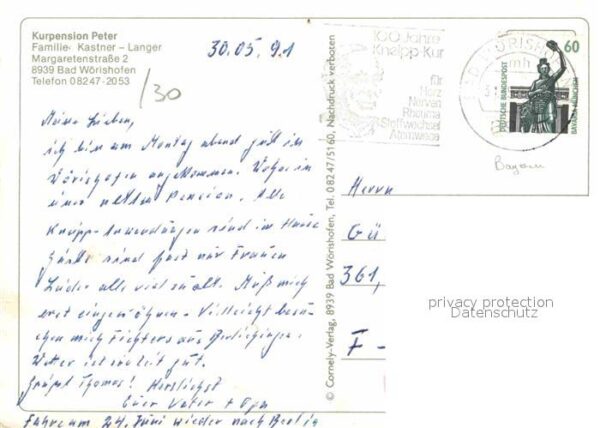 Kurpension Peter
Familie Kastner – Langer
Margaretenstraße 2
8939 Bad Wörishofen
Telefon 08247-2053
/30
30.05.91
Meine Lieben,
ich bin am Montag abend gut in
Wörishofen angekommen. Wohne in
einer netten Pension. Alle
Kneipp-Anwendungen sind im Hause
Gäste sind fast nur Frauen
Leider alle viel zu alt. Muß mich
erst eingewöhnen. Vielleicht besu-
chen mich Fichters aus
Wetter ist soweit gut.
Grüßt Thomas! Herzlichst
Euer Vater + Opa
Fahre am 24. Juni wieder nach Berlin
© Cornely-Verlag, 8939 Bad Wörishofen, Tel. 08247/5160, Nachdruck verboten
100 Jahre
Kneipp-Kur
für
Herz
Nerven
Rheuma
Stoffwechsel
Atemwege
60
DEUTSCHE BUNDESPOST
BAVARIA MÜNCHEN
Bayern
Herrn
Gü
361,
F-
privacy protection
Datenschutz